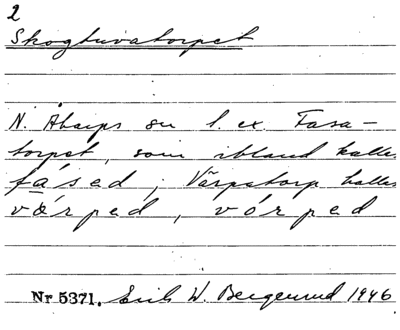 2
Skogtuvatorpet
N. Åbarps su t. ex. Fasa-
torpet, som ibland kalles
fa'sed; Värpatorp kalles
væ'rped, vó'rped
Nr 5371. Erik W. Bergenrud 1946